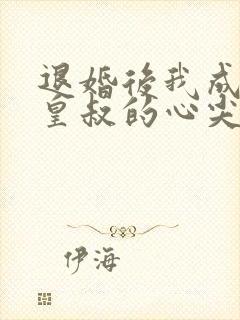 退婚後我成
皇叔的心尖
伊海